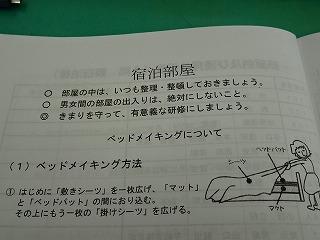 宿泊部屋
○ 部屋の中は、いつも整理・整頓しておきましょう。
○ 男女間の部屋の出入りは、絶対にしないこと。
◎ きまりを守って、有意義な研修にしましょう。
ベッドメイキングについて
（１）ベッドメイキング方法
ベッドパット
シーツ
① はじめに「敷きシーツ」を一枚広げ、「マット」
と「ベッドパット」の間におり込む。
その上にもう一枚の「掛けシーツ」を広げる。
マット